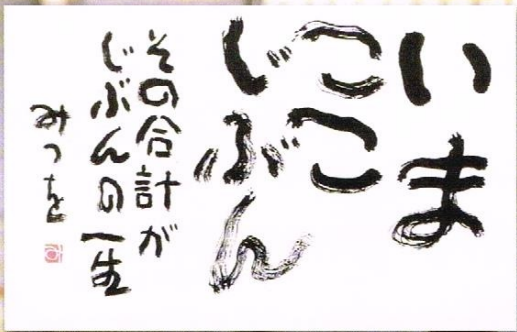 いま
ここ
じぶん
その合計が
じぶんの一生
みつを